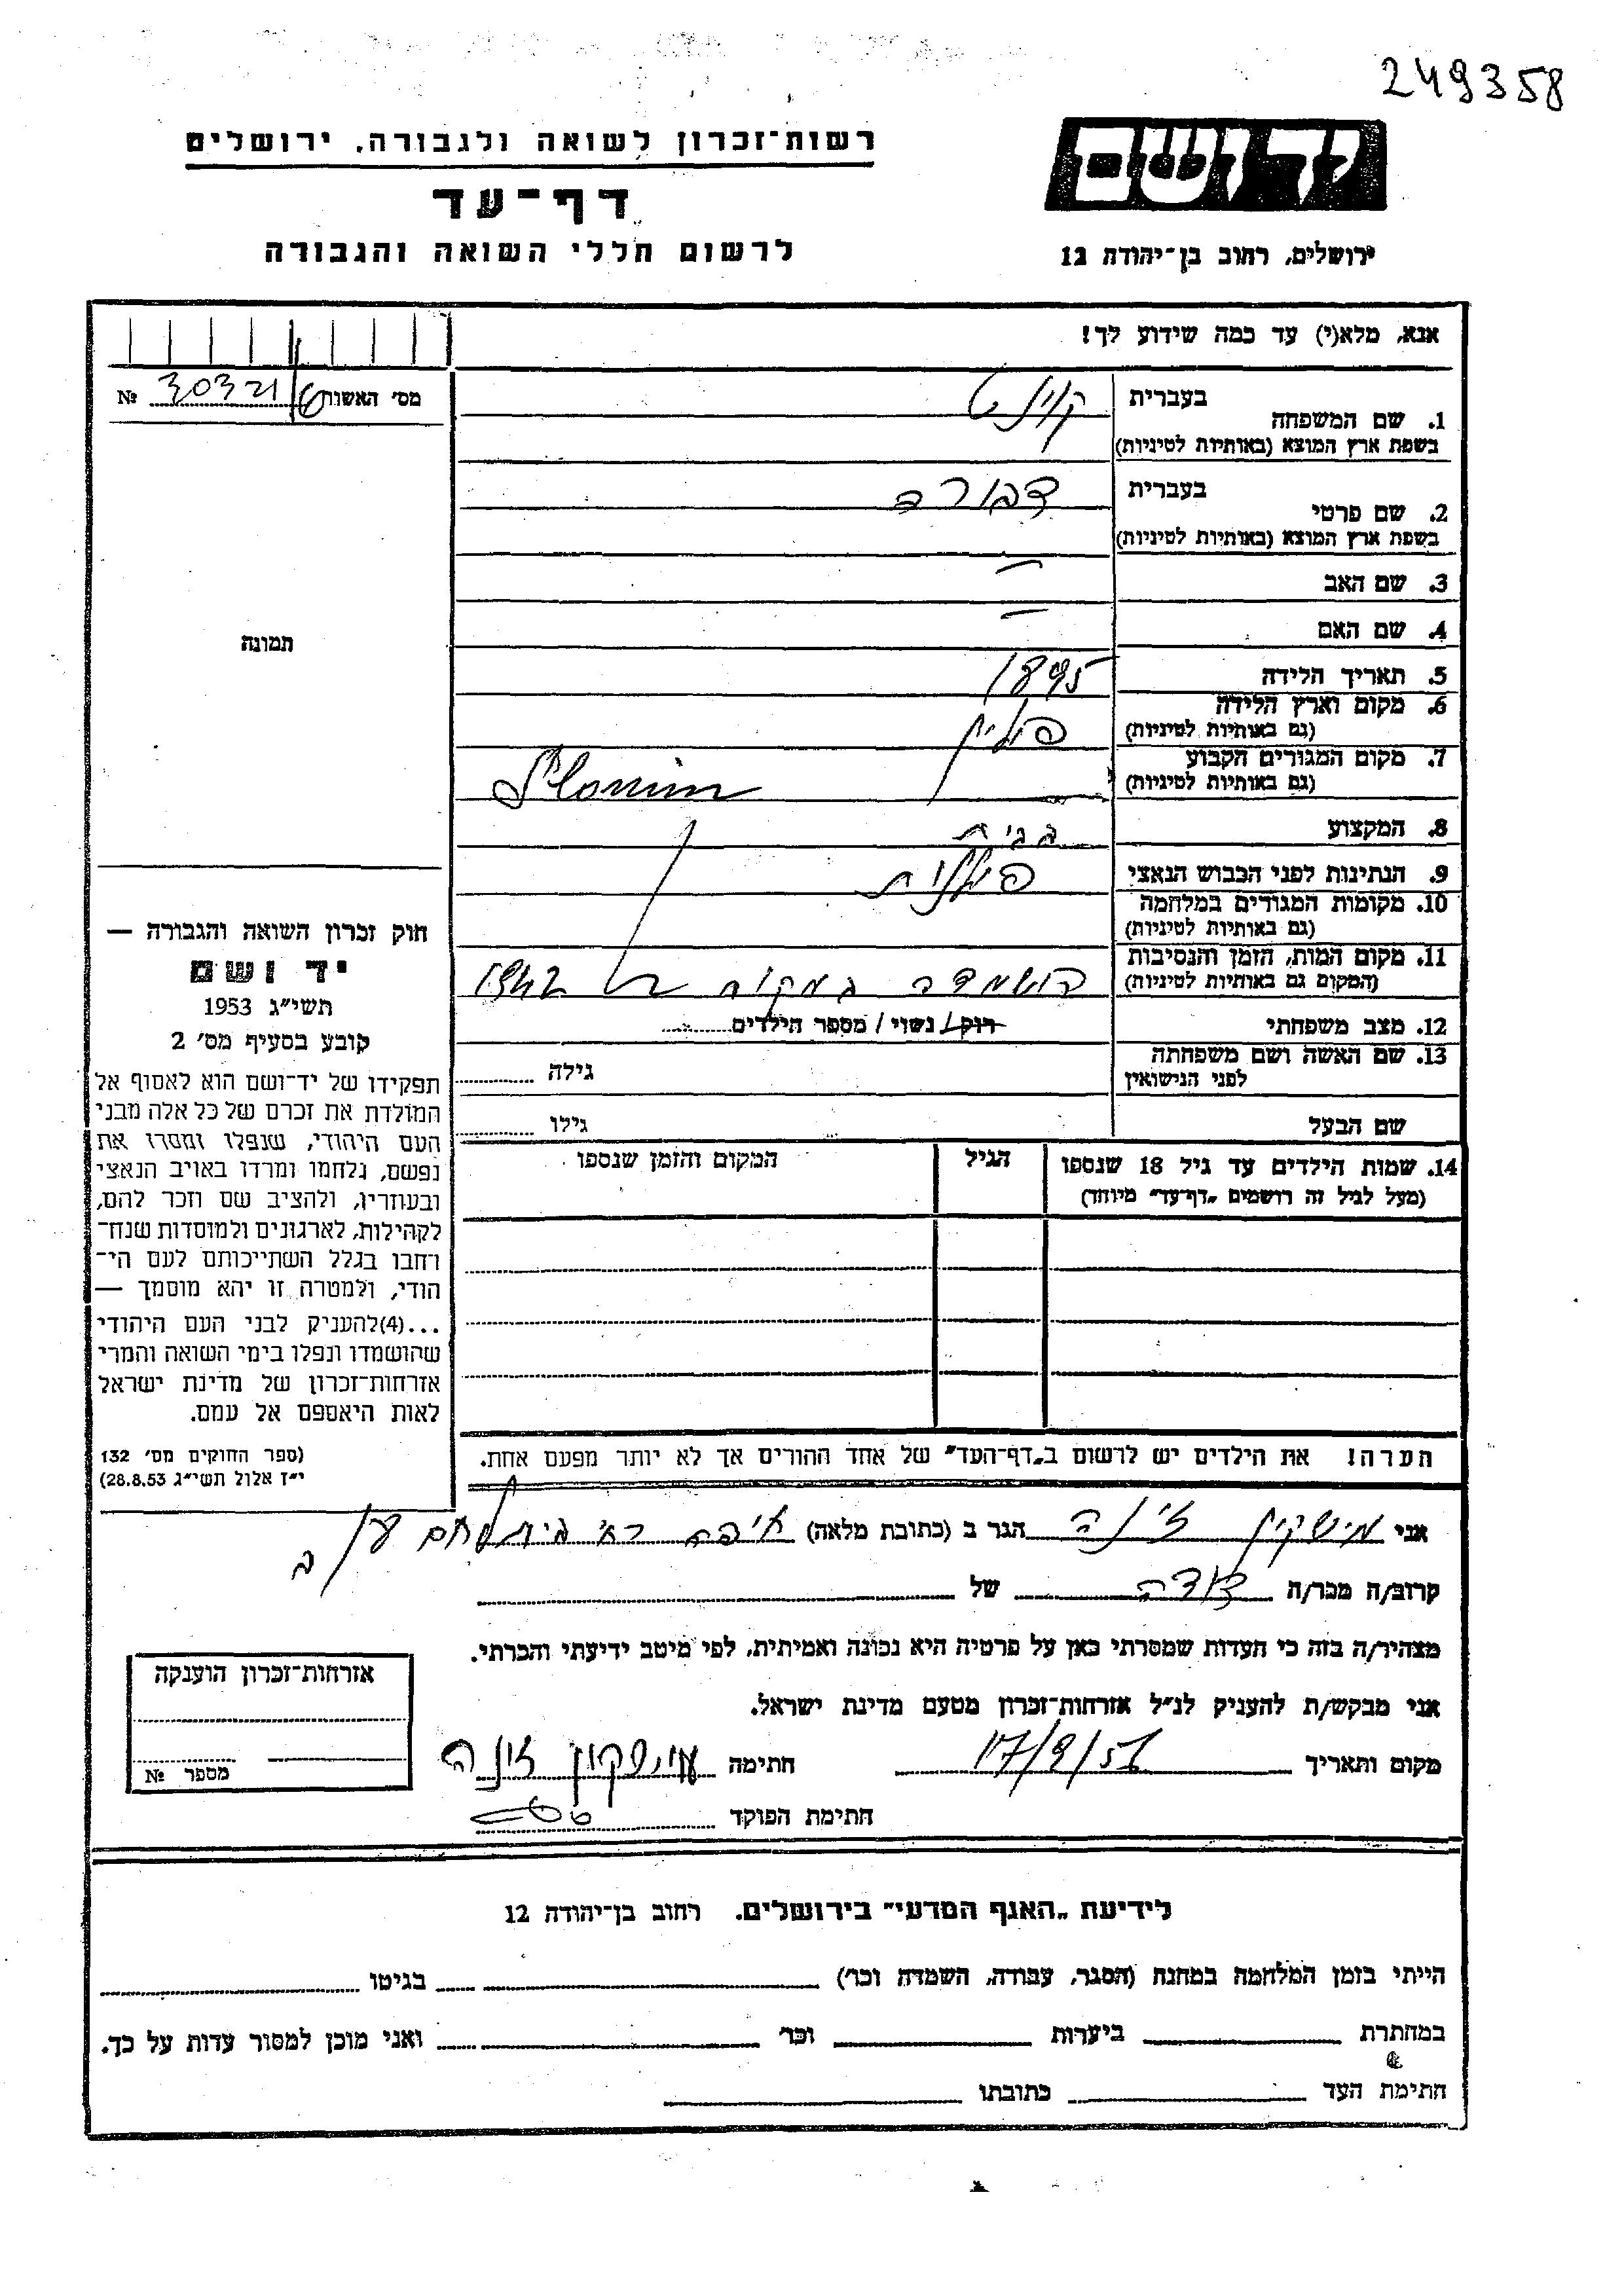 249358
יד ושם
רשות־זכרון לשואה ולגבורה, ירושלים
דף־עד
לרשום חללי השואה והגבורה
ירושלים, רחוב בן־יהודה 12
אנא, מלא(י) עד כמה שידוע לך!
מס׳ האשות 30321 № 
1. שם המשפחה בעברית
בשפת ארץ המוצא (באותיות לטיניות)
2. שם פרטי בעברית דבורה
בשפת ארץ המוצא (באותיות לטיניות)
3. שם האב —
4. שם האם —
תמונה
5. תאריך הלידה 1895
6. מקום וארץ הלידה פולין
(גם באותיות לטיניות)
7. מקום המגורים הקבוע Slonim
(גם באותיות לטיניות)
8. המקצוע
9. הנתינות לפני הכבוש הנאצי פולנית
10. מקומות המגורים במלחמה
(גם באותיות לטיניות)
11. מקום המות, הזמן והנסיבות
(המקום גם באותיות לטיניות) הושמדה במקום ב 1942
12. מצב משפחתי רוק / נשוי / מספר הילדים
13. שם האשה ושם משפחתה
לפני הנישואין גילה
שם הבעל גילו
14. שמות הילדים עד גיל 18 שנספו הגיל המקום והזמן שנספו
(מעל לגיל זה רושמים „דף־עד״ מיוחד)
חוק זכרון השואה והגבורה —
יד ושם
תשי״ג 1953
קובע בסעיף מס׳ 2
תפקידו של יד־ושם הוא לאסוף אל
המולדת את זכרם של כל אלה מבני
העם היהודי, שנפלו ומסרו את
נפשם, נלחמו ומרדו באויב הנאצי
ובעוזריו, ולהציב שם וזכר להם,
לקהילות, לארגונים ולמוסדות שנח־
רחבו בגלל השתייכותם לעם הי־
הודי, ולמטרה זו יהא מוסמך —
...(4)להעניק לבני העם היהודי
שהושמדו ונפלו בימי השואה והמרי
אזרחות־זכרון של מדינת ישראל
לאות היאספם אל עמם.
(ספר החוקים מס׳ 132
י״ז אלול תשי״ג 28.8.53)
הערה! את הילדים יש לרשום ב„דף־העד״ של אחד ההורים אך לא יותר מפעם אחת.
אני מישקין זינה הגר ב (כתובת מלאה) חיפה
קרוב/ה מכר/ה דודה של
מצהיר/ה בזה כי העדות שמסרתי כאן על פרטיה היא נכונה ואמיתית, לפי מיטב ידיעתי והכרתי.
אני מבקש/ת להעניק לנ״ל אזרחות־זכרון מטעם מדינת ישראל.
מקום ותאריך חתימה מישקין זינה
חתימת הפוקד
אזרחות־זכרון הוענקה
מספר №
לידיעת „האגף המדעי״ בירושלים. רחוב בן־יהודה 12
הייתי בזמן המלחמה במחנה (הסגר, עבודה, השמדה וכו׳) בגיטו
במחתרת ביערות וכו׳ ואני מוכן למסור עדות על כך.
חתימת העד כתובתו